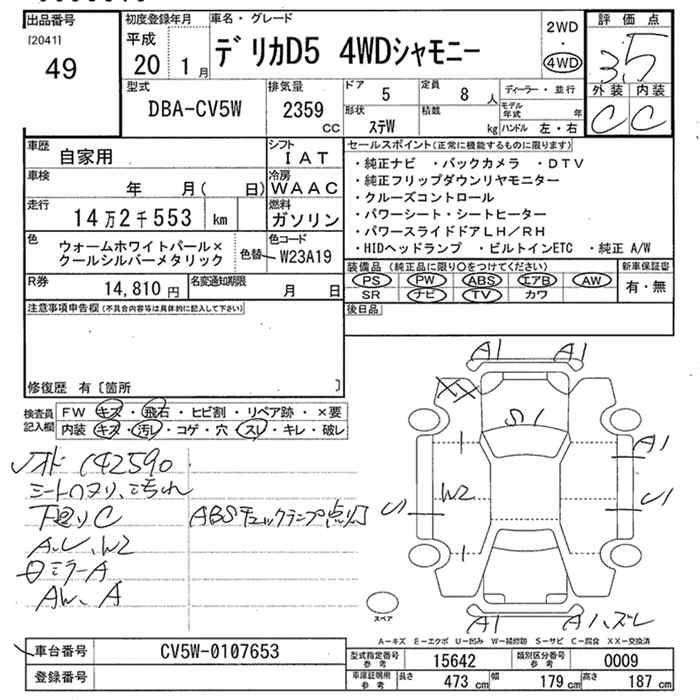 出品番号
[2041]
49
初度登録年月
平成
20 1月
車名・グレード
デリカD5 4WDシャモニー
2WD
・
4WD
評価点
3.5
外装 内装
C C
型式
DBA-CV5W
排気量
2359
CC
ドア 5
定員 8 人
形状
ステW
積載
kg
ディーラー・並行
モデル年式 年
ハンドル 左・右
車歴
自家用
シフト
IAT
車検
年 月( 日)
冷房
WAAC
走行
14万2千553 km
燃料
ガソリン
色
ウォームホワイトパール×
クールシルバーメタリック
色替
色コード
W23A19
R券
14,810 円
名変通知期限
月 日
セールスポイント(正常に機能するものに限ります)
・純正ナビ ・バックカメラ ・DTV
・純正フリップダウンリヤモニター
・クルーズコントロール
・パワーシート・シートヒーター
・パワースライドドアLH/RH
・HIDヘッドランプ ・ビルトインETC ・純正 A/W
装備品 (純正品に限り○をつけてください)
PS PW ABS エアB AW
SR ナビ TV カワ
新車保証書
有・無
後日品
注意事項申告欄(不具合内容等は具体的に記入して下さい)
修復歴 有〔箇所 〕
検査員
記入欄
FW キズ・飛石・ヒビ割・リペア跡・×要
内装 キズ・汚レ・コゲ・穴・スレ・キレ・破レ
142590
下廻りC
ABSチェックランプ点灯
A,U,W2
ミラーA
AW,A
A1 A1
XX
S1
1
A1
U1
W2
U1
1
A1
A1ハズレ
スペア
A-キズ E-エクボ U-凹み W-補修跡 S-サビ C-腐食 XX-交換済
車台番号
CV5W-0107653
登録番号
型式指定番号
参考
15642
類別区分番号
参考
0009
車庫証明用
参考
長さ 473 cm
幅 179 cm
高さ 187 cm